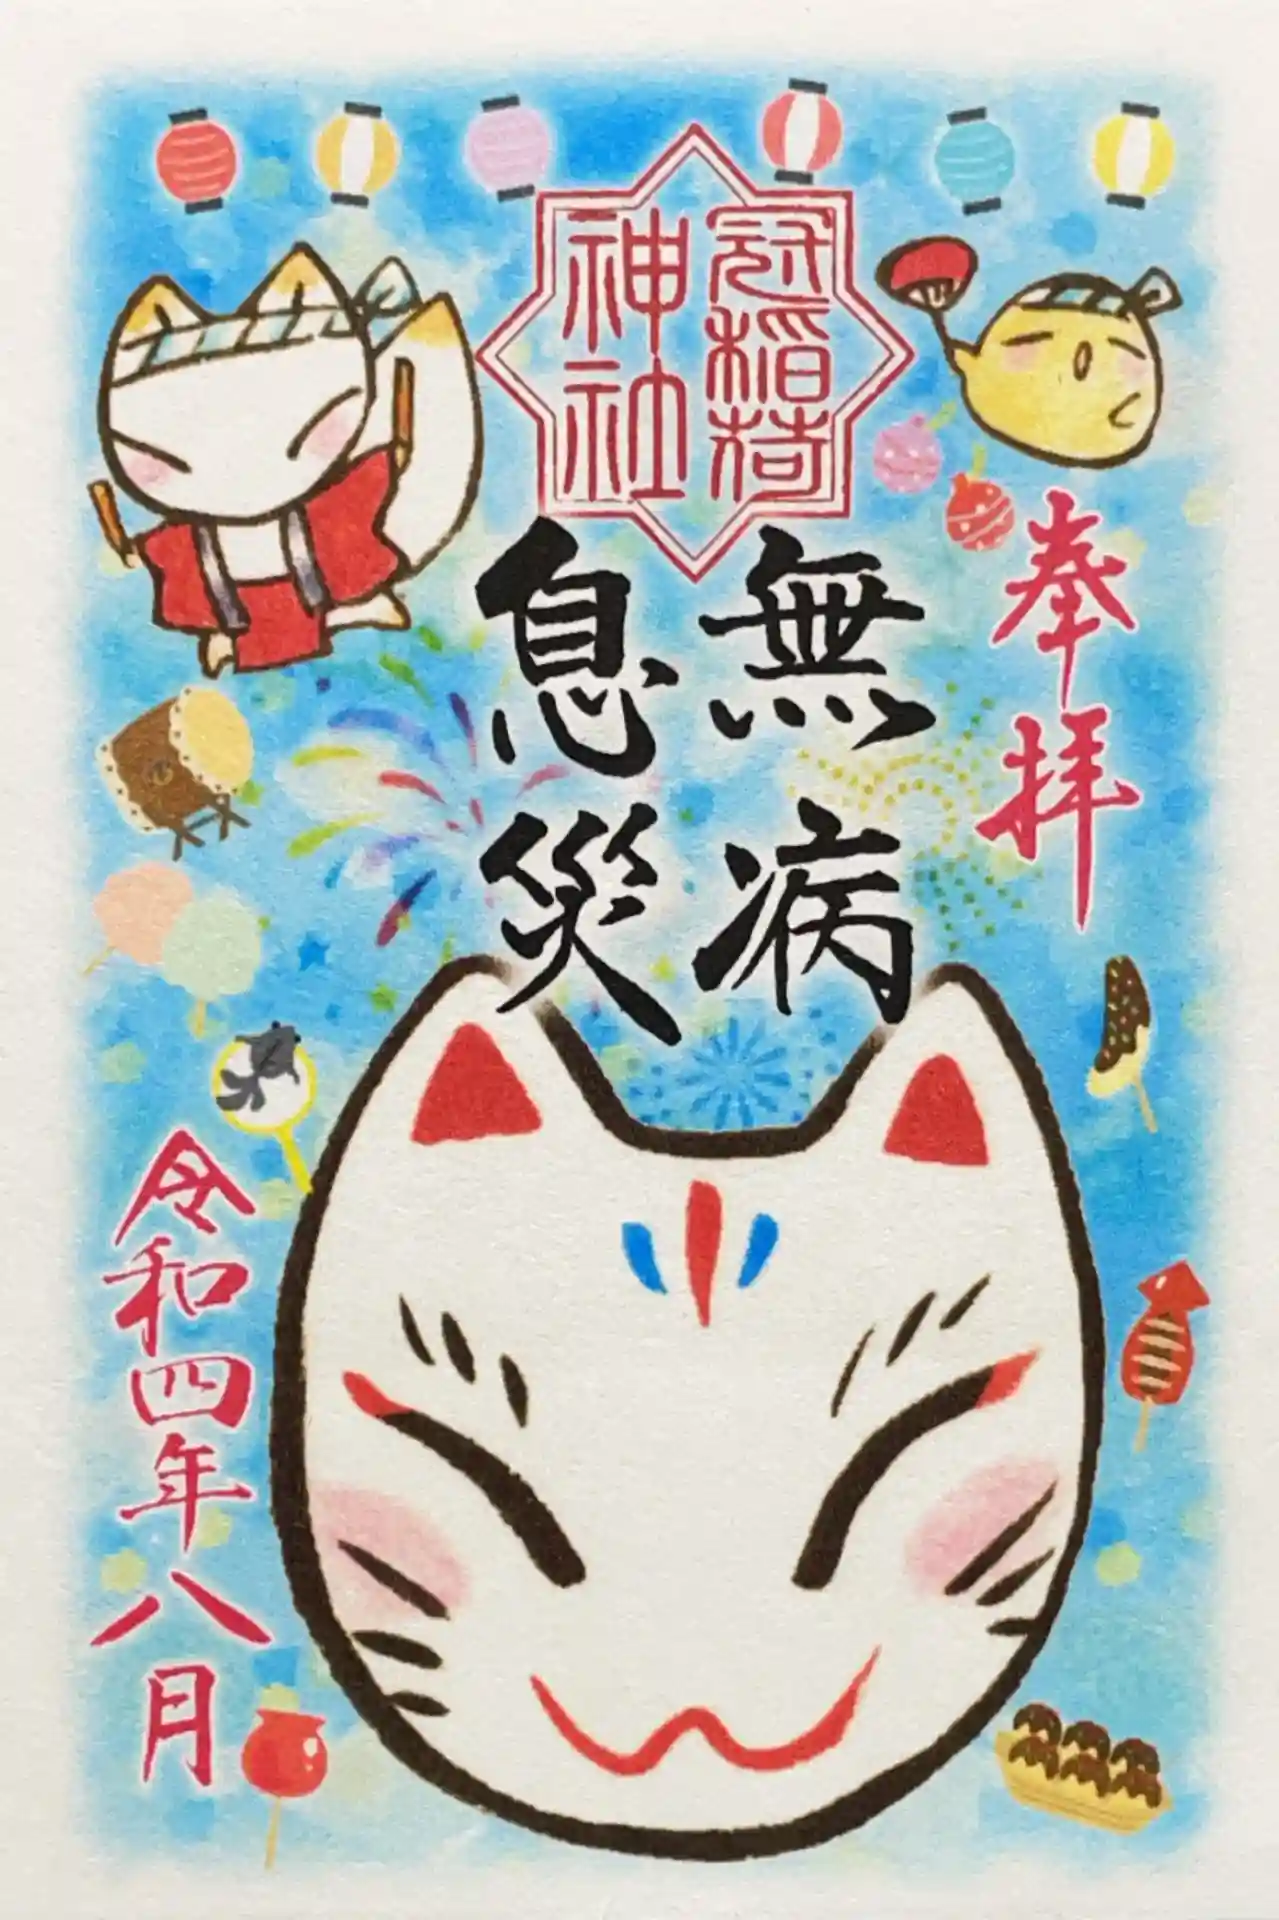 奉拝
冠稲荷
神社
無病
息災
令和四年八月